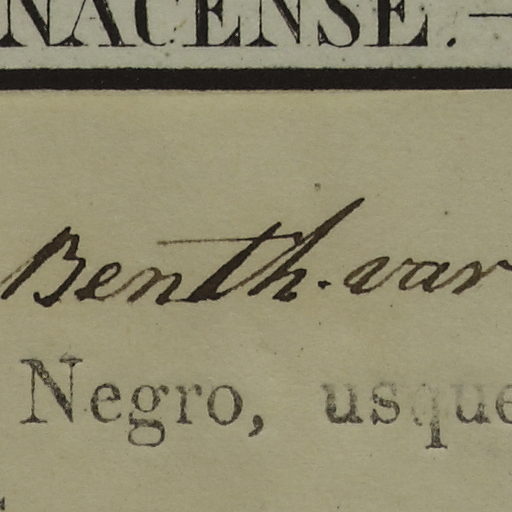 NACENSE.—
Benth. var
Negro, usque